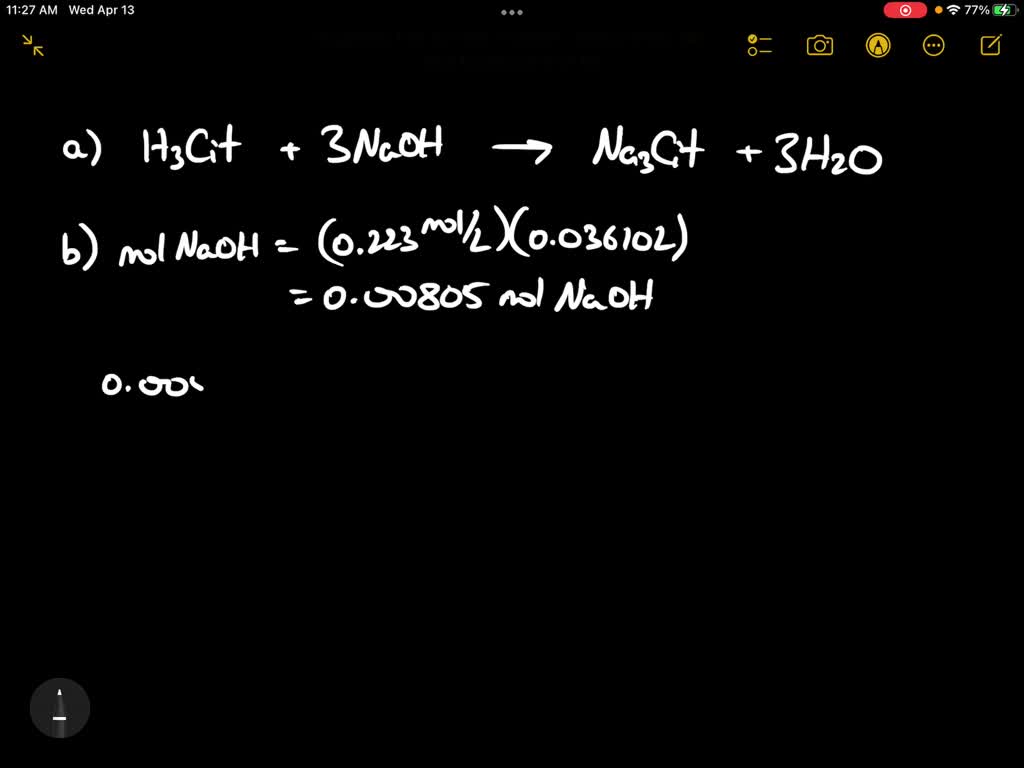 11:27 AM Wed Apr 13
77%
a) H₃Cit + 3NaOH → Na₃Cit + 3H₂O
b) mol NaOH = (0.223 mol/L)(0.03610L)
= 0.00805 mol NaOH
0.00